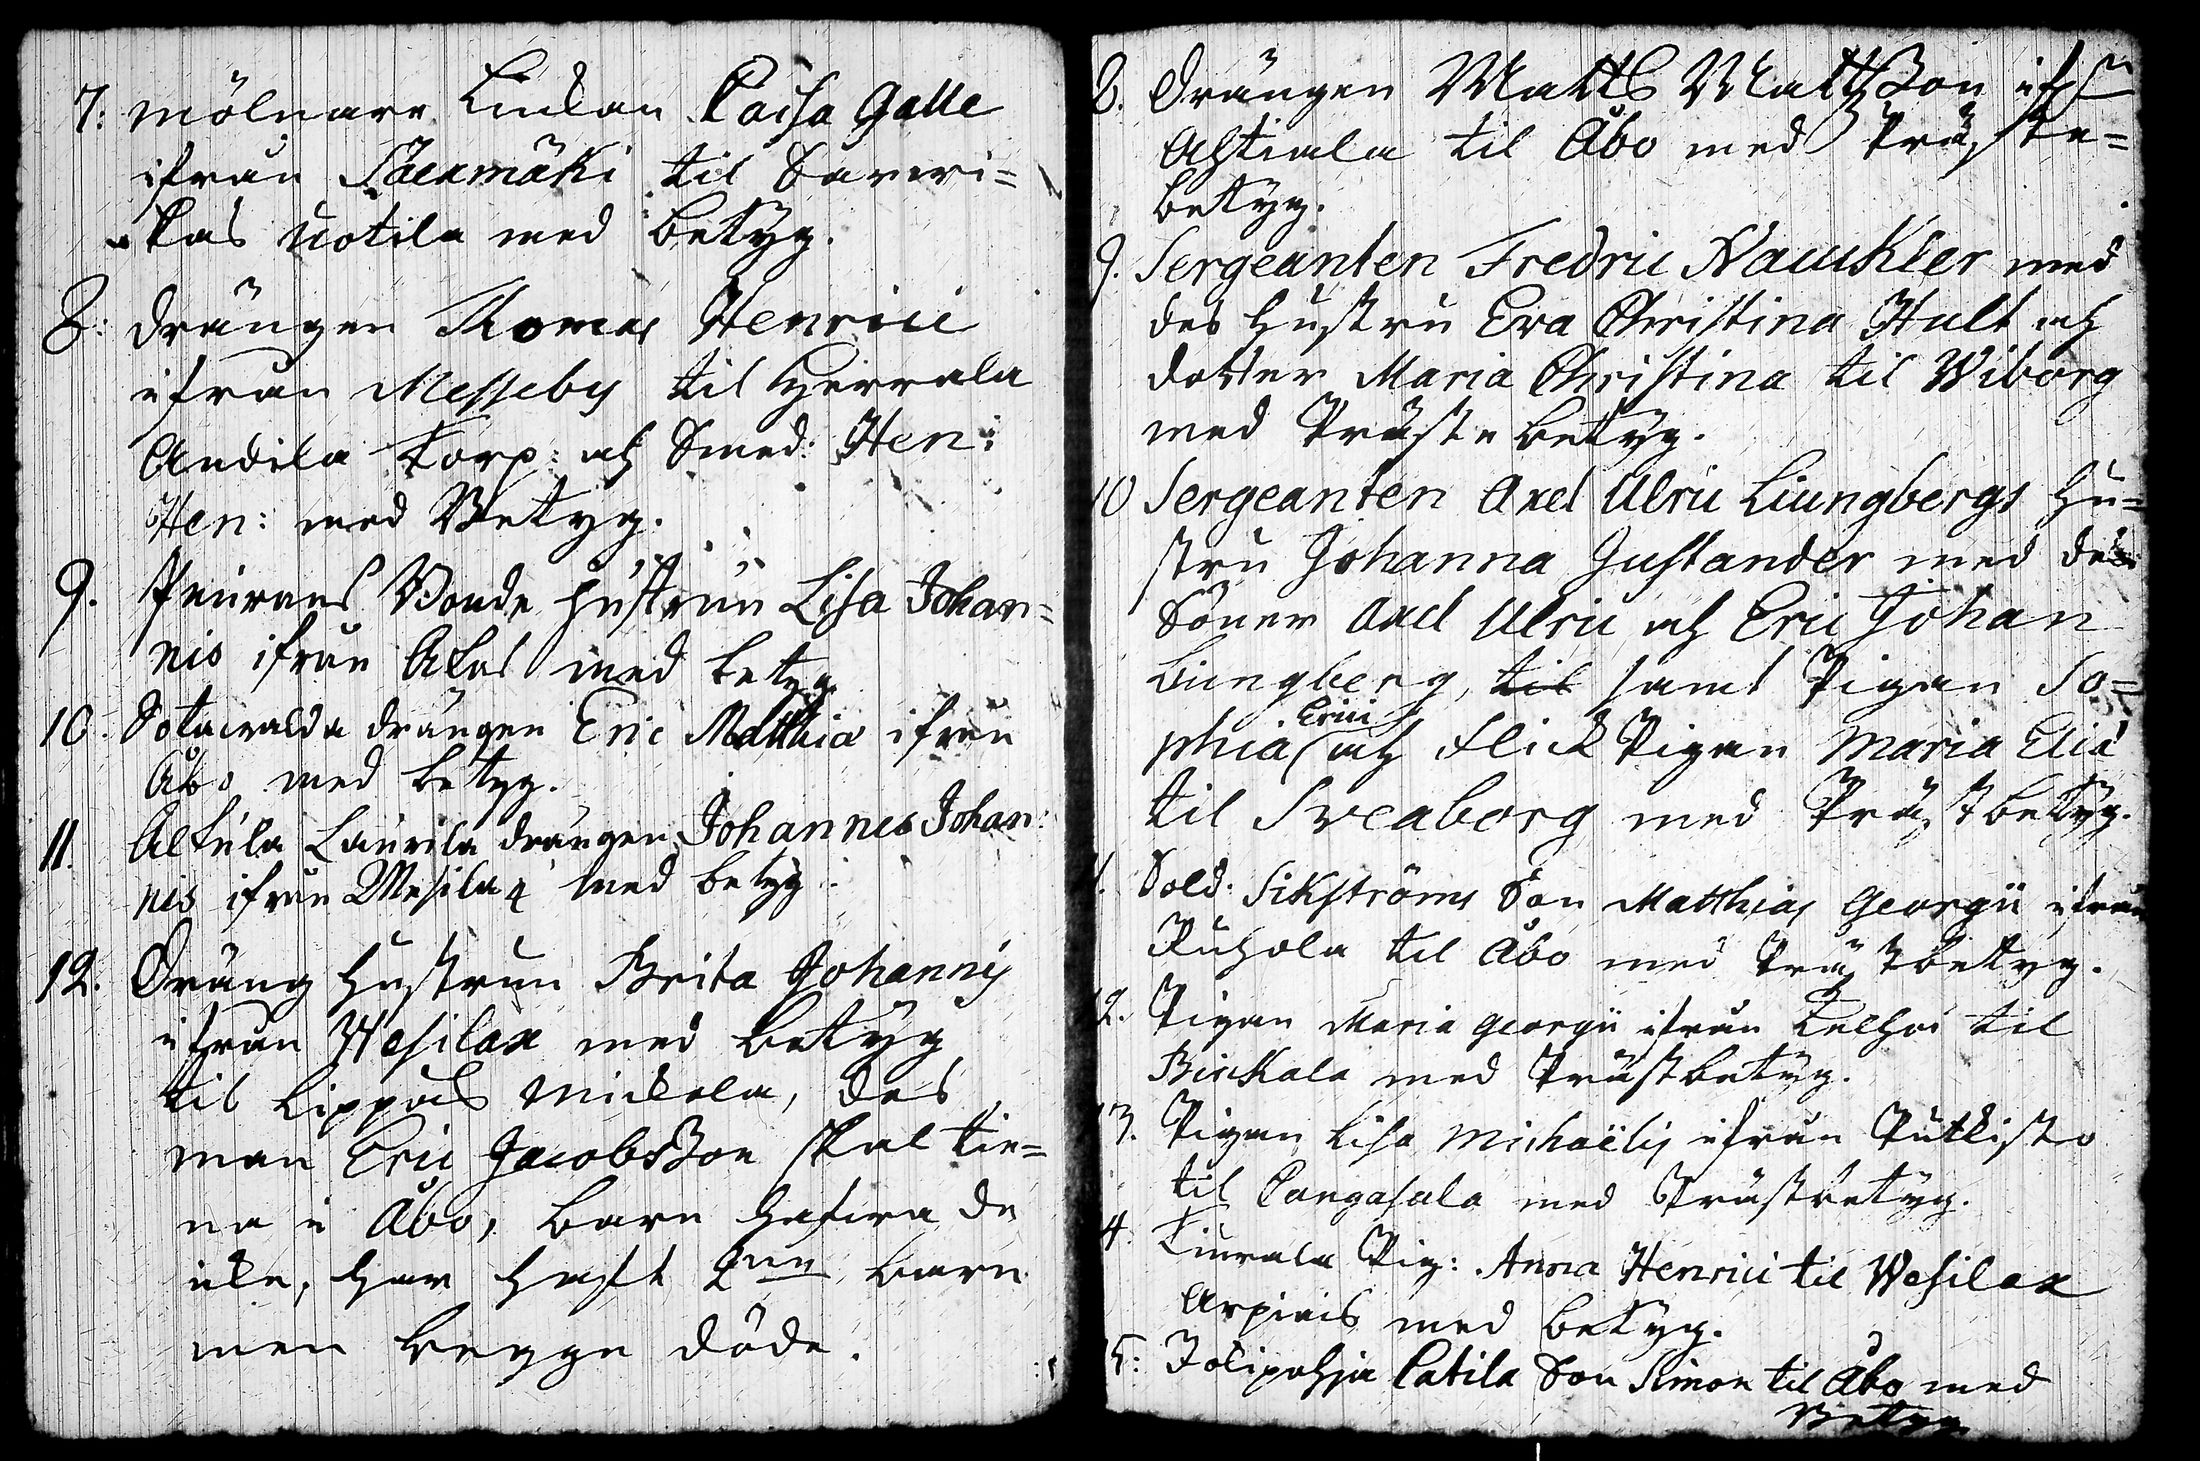 7: Mölnare Enckan Caisa Galle
ifrån Säexmäki til Saveri=
skas Uotila med betyg.
8: Drängen Thomas Henrici
ifrån Messeby til Herrala
Andila Torp: och Smed: Hen:
Hen: med Betyg.
9. Peurans Bonde hustrun Lisa Johan=
nis ifrån Akas med betyg
10. Sotawalda drängen Eric Matthiæ ifrån
Åbo med betyg.
11. Alkula Laurila drängen Johannes Johan:
nis ifrån Wesilax med betyg.
12. Dräng Hustrun Brita Johannis
ifrån Wesilax med betyg
til Lippois Mickola, des
man Eric Jacobsson skal tie=
na i Åbo, barn hafwa de
icke, har haft 2nne barn
men begge döde.
8. Drängen Matts Mattsson ifrån
Ahtiala til Åbo med Präste=
betyg.
9. Sergeanten Fredric Nauckler med
des hustru Eva Christina Hult och
dotter Maria Christina til Wiborg
med Präste betyg.
10 Sergeanten Axel Ulric Liungbergs Hu=
stru Johanna Justander med des
Söner Axel Ulric och Eric Johan
Liungberg, til samt Pigan So=
phia Erici och flick Pigan Maria Eliæ
til Sveaborg med Prästbetyg.
Sold. Sikströms Son Matthias Georgii ifrån
Ruhola til Åbo med Prästbetyg.
12. Pigan Maria Georgii ifrån Kelhoi til
Birkala med Prästbetyg.
13. Pigan Lisa Michaëlis ifrån Putkisto
til Cangasala med Prästbetyg.
4. Kiurala Pig: Anna Henrici til Wesilax
Arpiais med betyg.
15: Jolipohja Catila Son Simon til Åbo med
Betyg